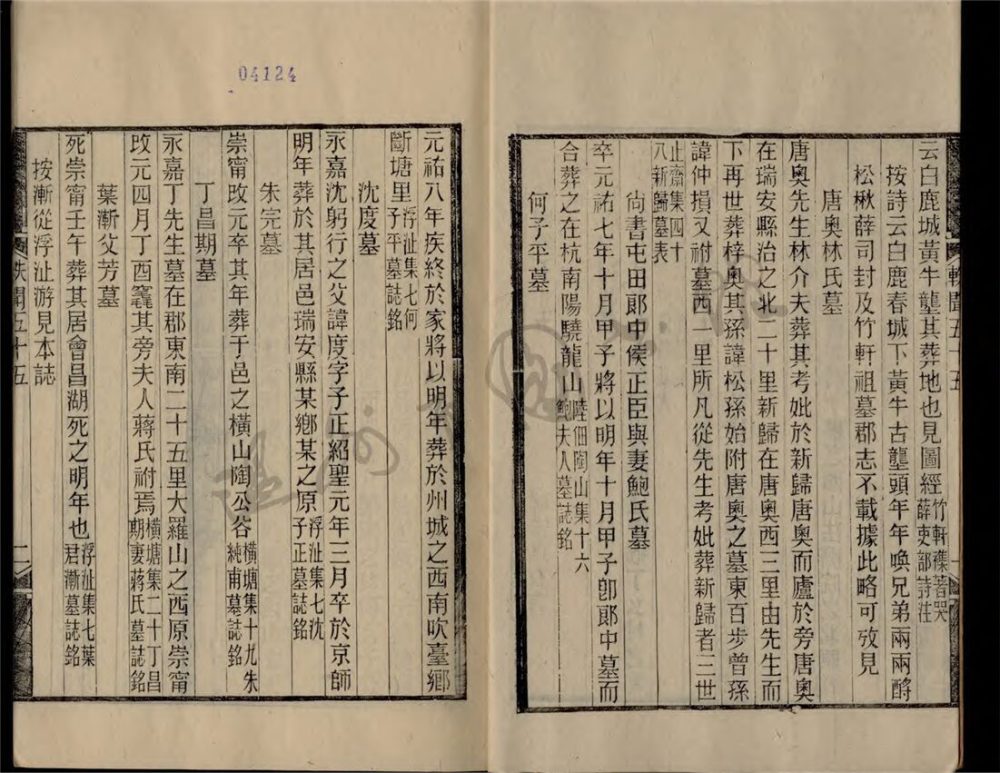 云白鹿城黃牛壟其葬地也見圖經竹軒襍著哭薛吏部詩注
按詩云白鹿春城下黃牛古壟頭年年喚兄弟兩兩酹
松楸薛司封及竹軒祖墓郡志不載據此略可攷見
唐奧林氏墓
唐奧先生林介夫葬其考妣於新歸唐奧而廬於旁唐奧
在瑞安縣治之北二十里新歸在唐奧西三里由先生而
下再世葬梓奧其孫諱松孫始附唐奧之墓東百步曾孫
諱仲損又祔墓西一里所凡從先生考妣葬新歸者三世
止齋集四十八新歸墓表
尙書屯田郞中侯正臣與妻鮑氏墓
卒元祐七年十月甲子將以明年十月甲子卽郞中墓而
合葬之在杭南陽驍龍山陸佃陶山集十六鮑夫人墓誌銘
何子平墓
軼聞五十五
一
04124
元祐八年疾終於家將以明年葬於州城之西南吹臺鄉
斷塘里浮沚集七何子平墓誌銘
沈度墓
永嘉沈躬行之父諱度字子正紹聖元年三月卒於京師
明年葬於其居邑瑞安縣某鄉某之原浮沚集七沈子正墓誌銘
朱完墓
崇甯改元卒其年葬于邑之橫山陶公谷橫塘集十九朱純甫墓誌銘
丁昌期墓
永嘉丁先生墓在郡東南二十五里大羅山之西原崇甯
改元四月丁酉窆其旁夫人蔣氏祔焉橫塘集二十丁昌期妻蔣氏墓誌銘
葉漸父芳墓
死崇甯壬午葬其居會昌湖死之明年也浮沚集七葉君漸墓誌銘
按漸從浮沚游見本誌
軼聞五十五
二